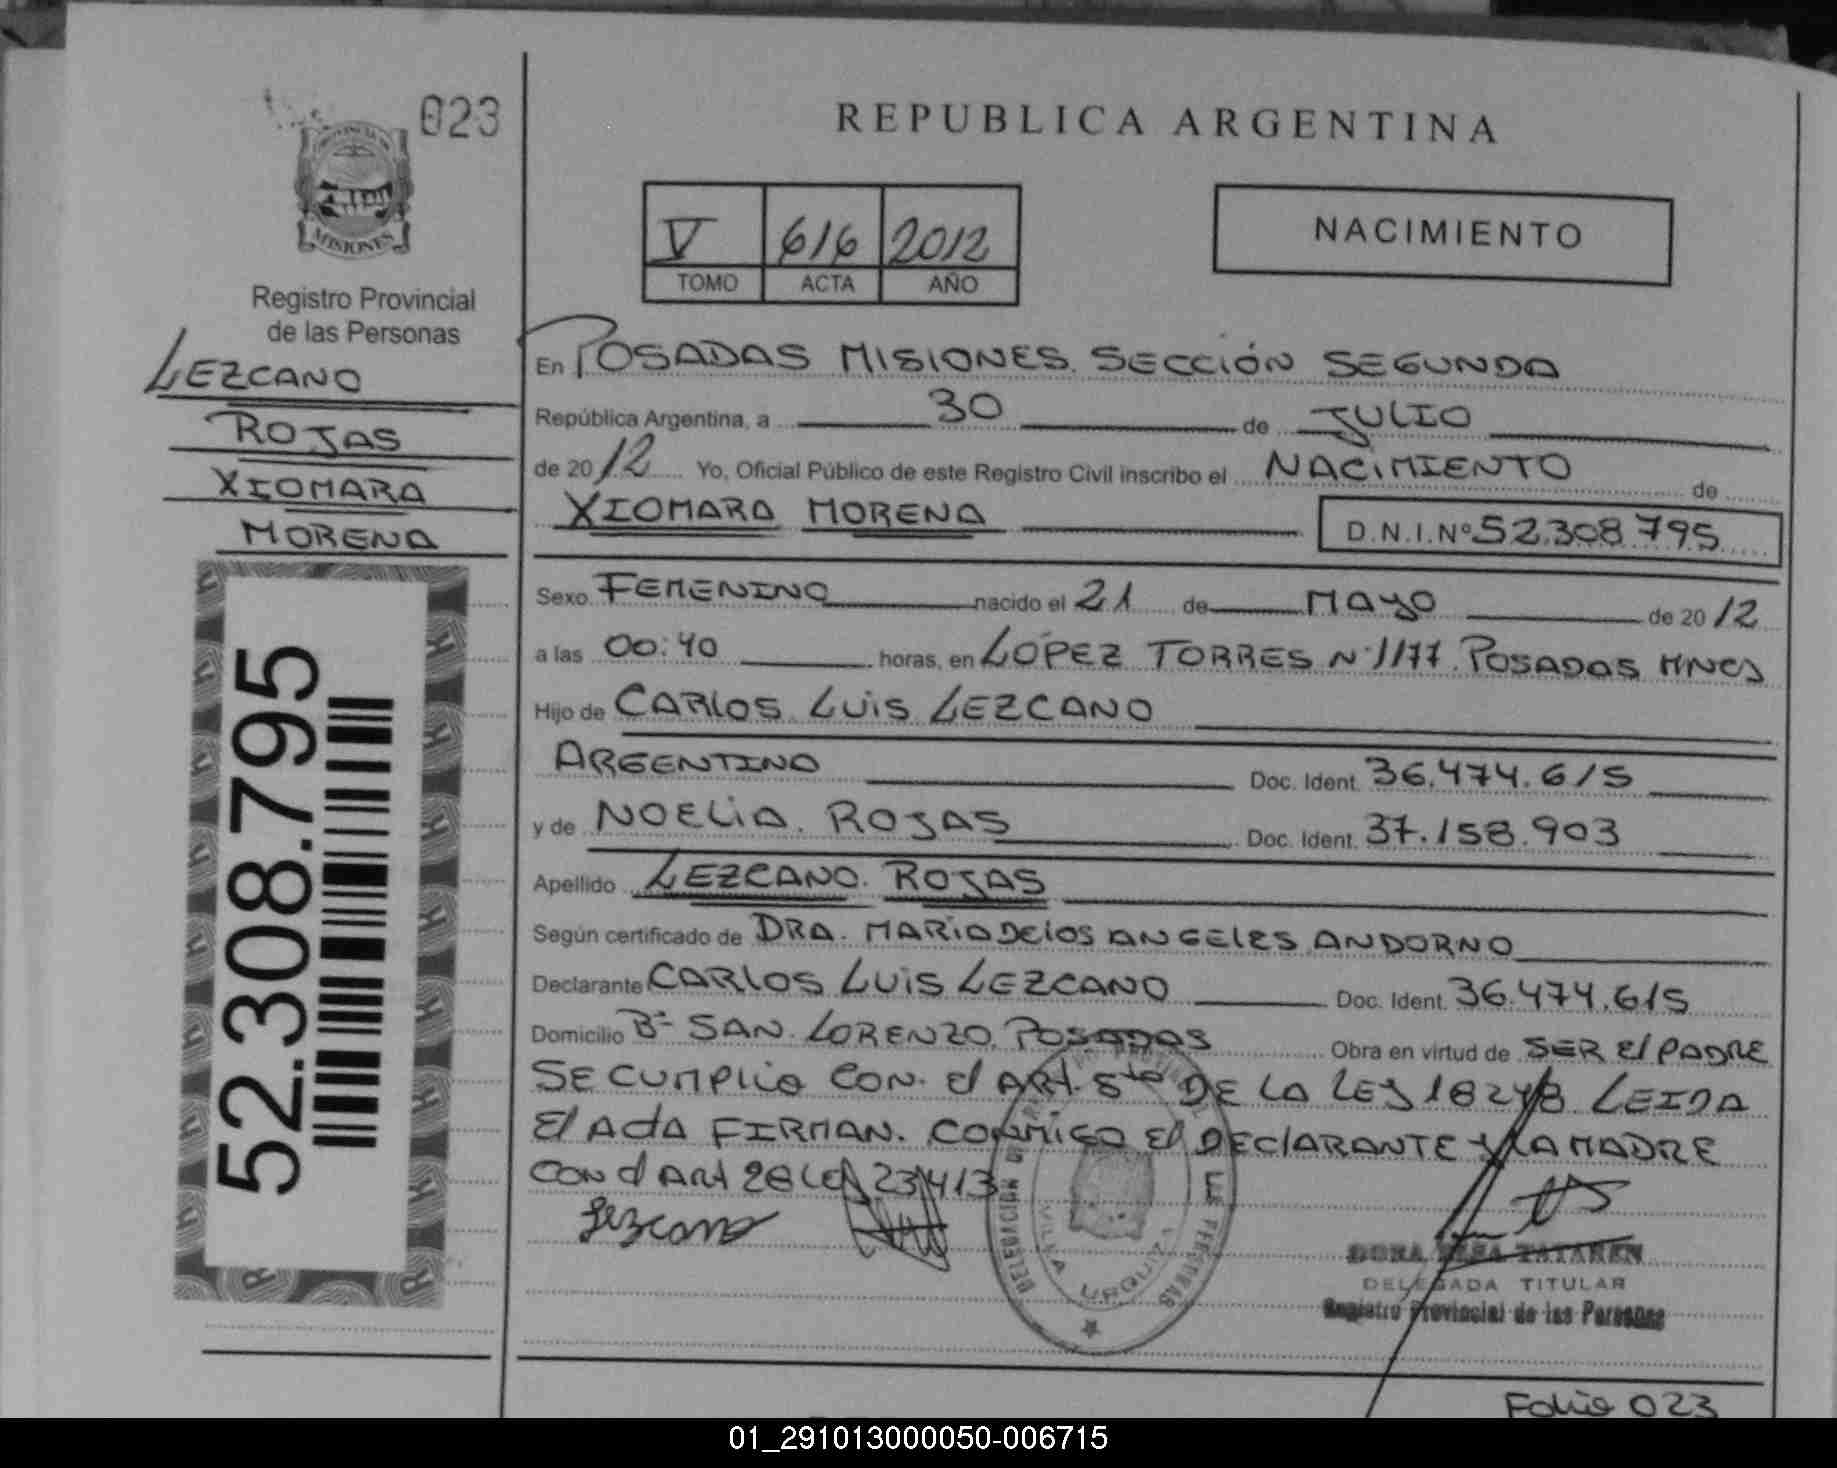 023
PROVINCIA DE
MISIONES
Registro Provincial
de las Personas
LEZCANO
ROJAS
XIOMARA
MORENA
52.308.795
REPUBLICA ARGENTINA
V 616 2012
TOMO ACTA AÑO
NACIMIENTO
En POSADAS MISIONES. SECCIÓN SEGUNDA
República Argentina, a 30 de JULIO
de 2012 Yo, Oficial Público de este Registro Civil inscribo el NACIMIENTO de
XIOMARA MORENA D.N.I.Nº 52.308.795
Sexo FEMENINO nacido el 21 de MAYO de 2012
a las 00:40 horas, en LÓPEZ TORRES Nº 1177. POSADAS MNES
Hijo de CARLOS LUIS LEZCANO
ARGENTINO Doc. Ident. 36.474.615
y de NOELIA. ROJAS Doc. Ident. 37.158.903
Apellido LEZCANO. ROJAS
Según certificado de DRA. MARIA DE LOS ANGELES ANDORNO
Declarante CARLOS LUIS LEZCANO Doc. Ident. 36.474.615
Domicilio Bº SAN. LORENZO. POSADAS Obra en virtud de SER El PADRE
SE CUMPLIO CON. El ART. 5to DE LA LEY 18248 LEIDA
El ActA FIRMAN. CONMIGO El DEClARANTE Y LA MADRE
CON el ARt 28 LEY 23.413
Lezcano
DELEGACION
VILLA URQUIZA
DORA TATAREN
DELEGADA TITULAR
Registro Provincial de las Personas
Folio 023
01_291013000050-006715